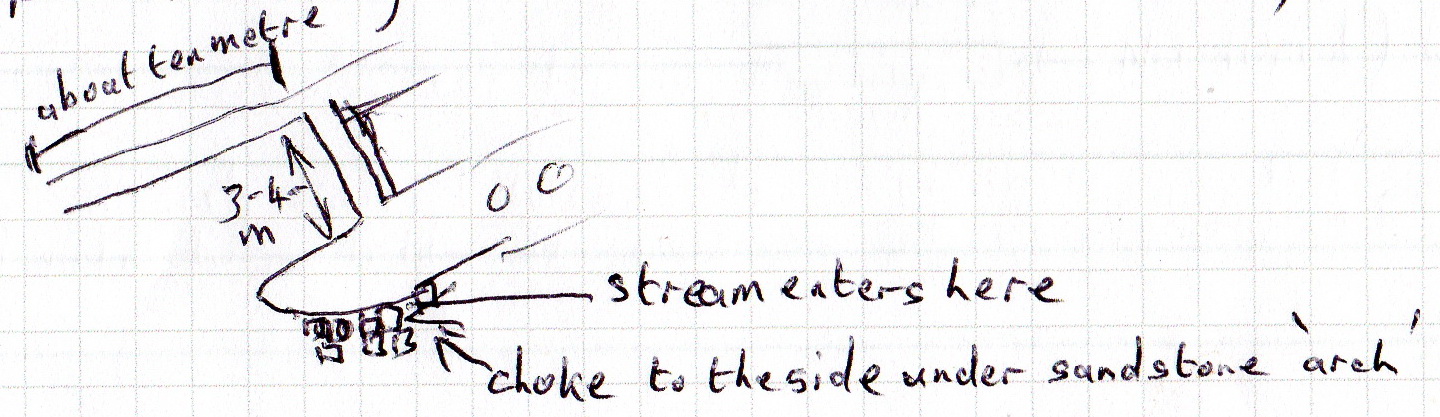 about ten metre
3-4
m
stream enters here
choke to the side under sandstone 'arch'